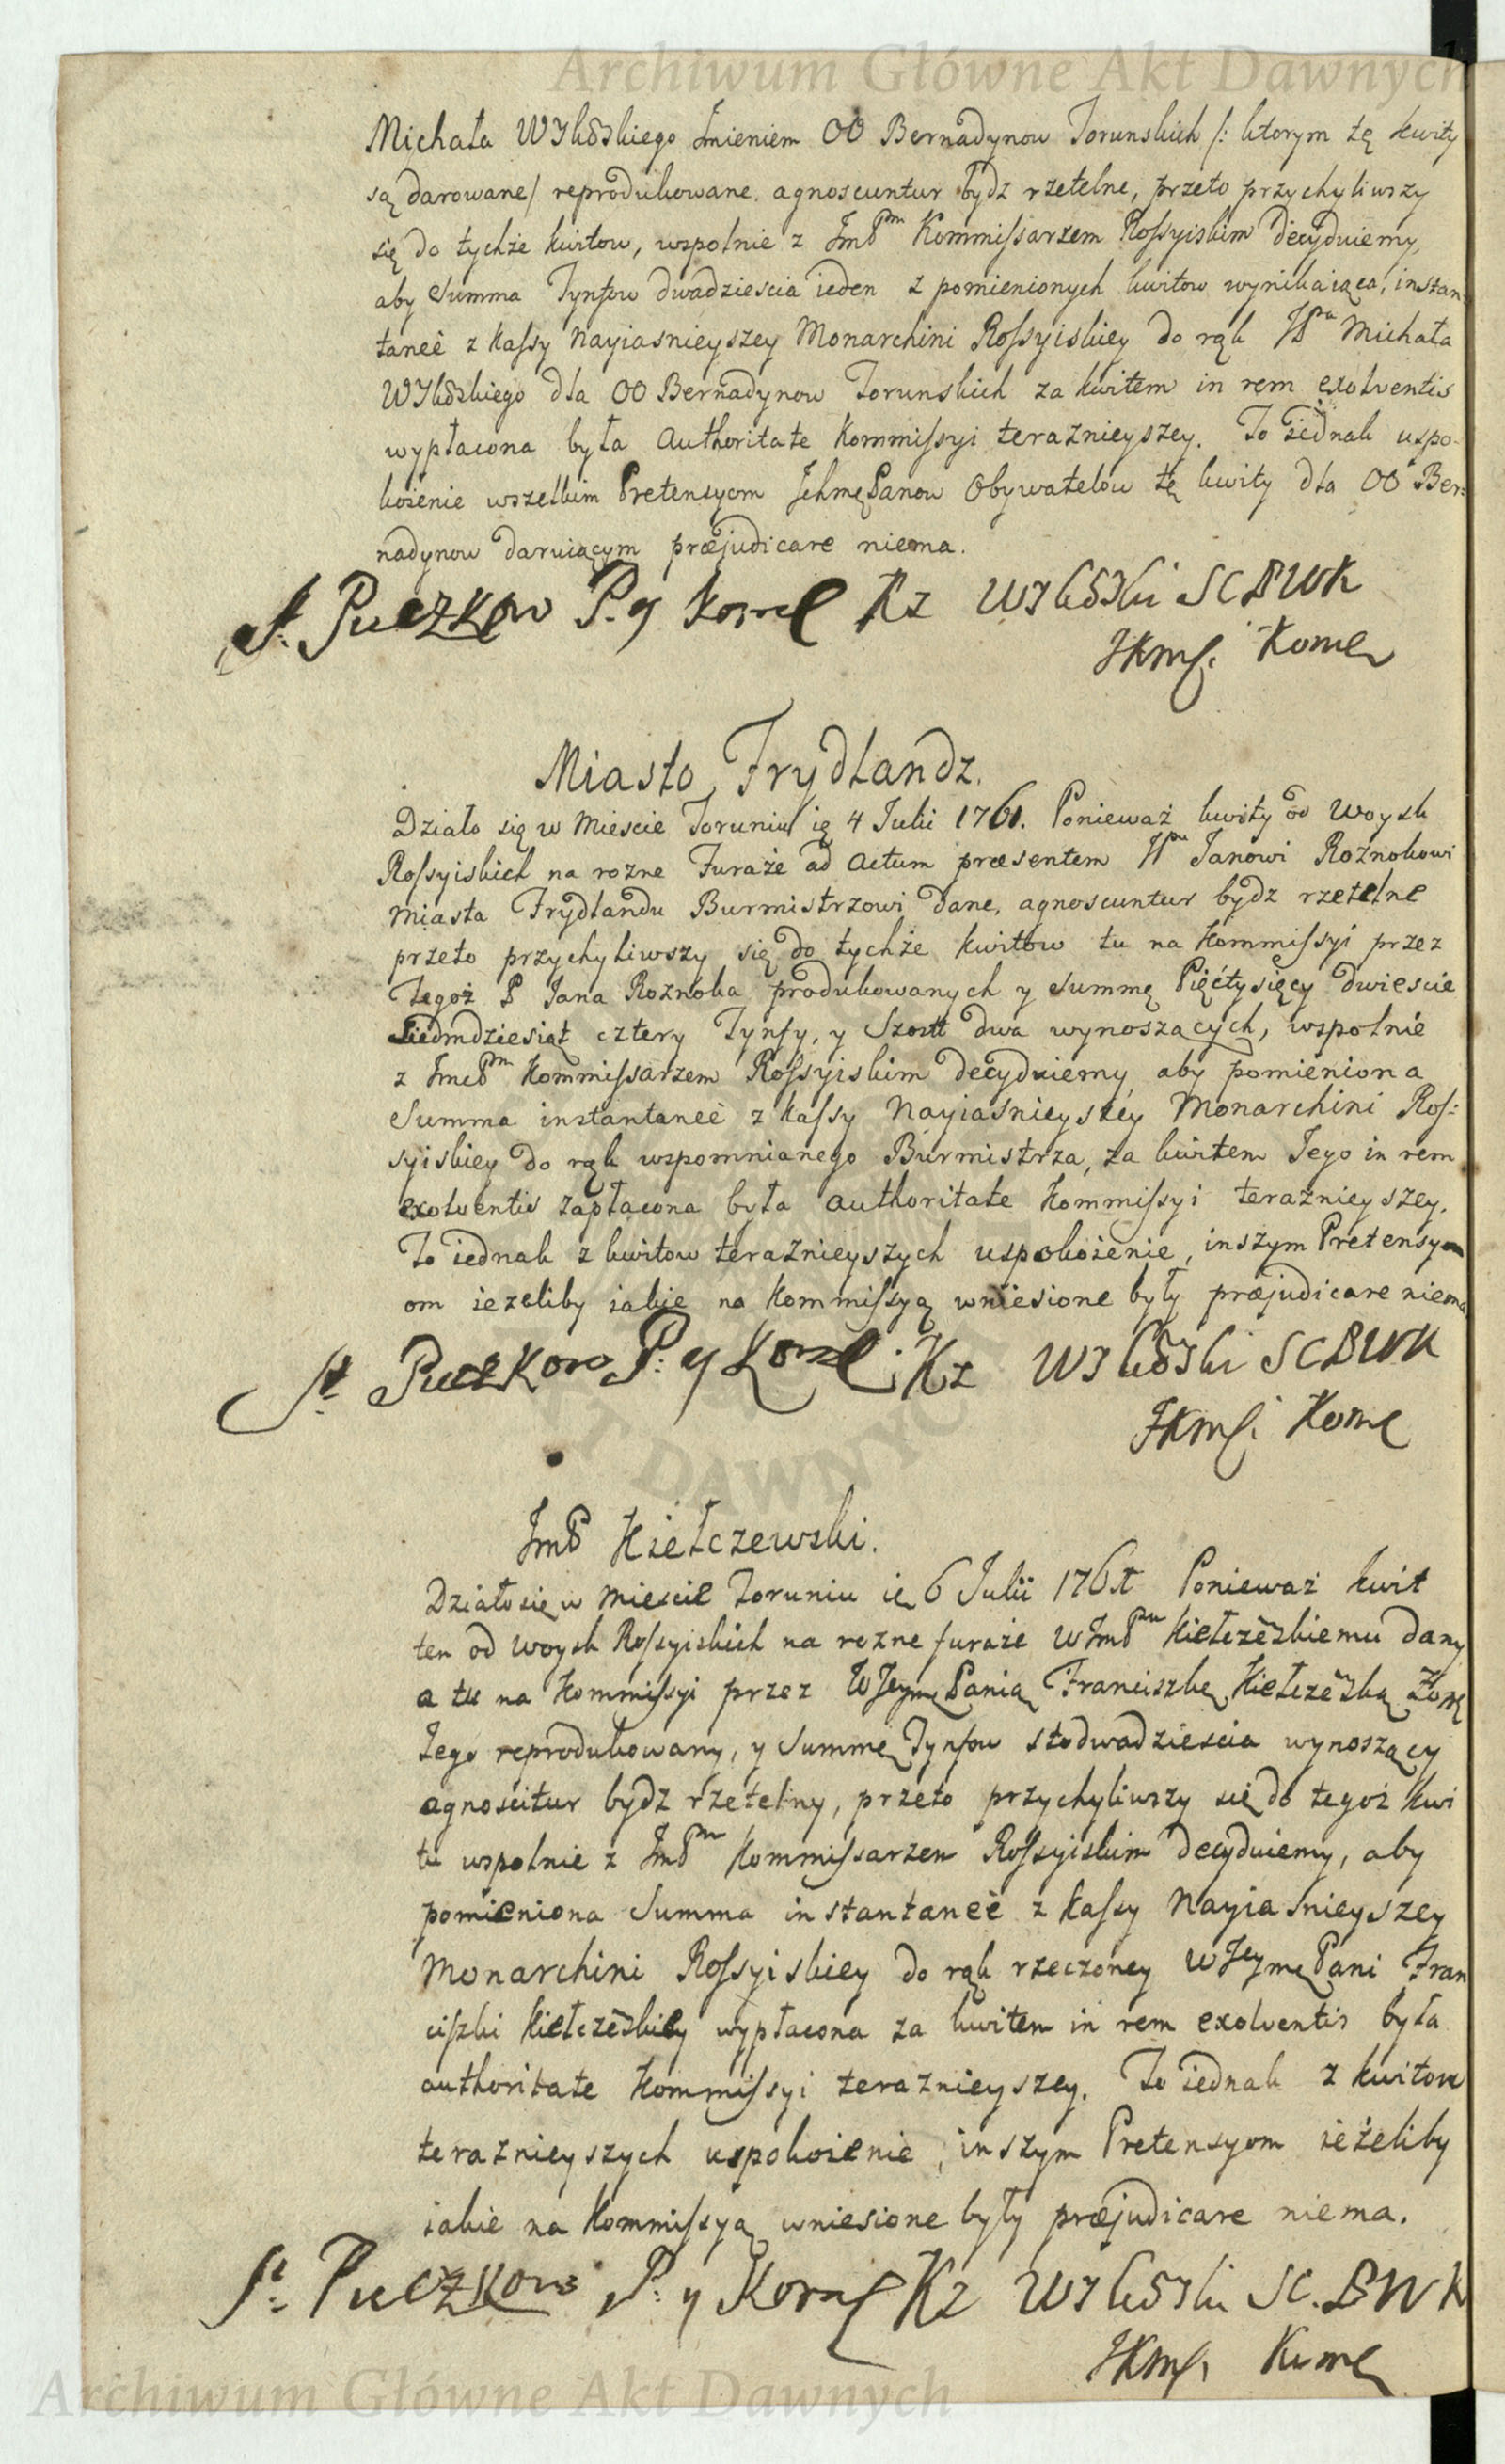 Archiwum Główne Akt Dawnych
Michała Wilskiego Imieniem OO Bernadynow Torunskich /: ktorym tę kwity
są darowane/ reprodukowane. agnoscuntur bydz rzetelne, przeto przychyliwszy
się do tychże kwitow, wspolnie z ImP^m Kommissarzem Rossyiskim decyduiemy,
aby Summa Tynfow dwadziescia ieden z pomienionych kwitow wynikaiąca, instan
taneè z Kassy Nayiasnieyszey Monarchini Rossyiskiey do rąk Michała
dla OO Bernadynow Torunskich za kwitem in rem exolventis
wypłacona była Authoritate Kommissyi teraznieyszey. To iednak uspo-
koienie wszelkim Pretensyom Ichmę Panow Obywatelow tę kwity dla OO Ber:
nadynow daruiącym præjudicare niema.
St. Puczkow P. y Kz SCBWK
JKMs.
Miasto Frydlandz.
Działo się w Miescie Toruniu ię 4 Julii 1761. Ponieważ kwity od Woysk
Rossyiskich na rozne Furaże ad Actum præsentem Janowi Roznokowi
Miasta Frydlandu Burmistrzowi dane, agnoscuntur bydz rzetelne
przeto przychyliwszy się do tychże kwitow tu na Kommissyi przez
Tegoż P Jana Roznoka produkowanych y Summę Pięćtysięcy dwiescie
siedmdziesiąt cztery Tynfy, y Szostt dwa wynoszących, wspolnie
z ImcP^m Kommissarzem Rossyiskim decyduiemy aby pomieniona
Summa instantaneè z Kassy Nayiasnieyszey Monarchini Ros:
syiskiey do rąk wspomnianego Burmistrza, za kwitem Jego in rem
exolventis zapłacona była authoritate Kommissyi teraznieyszey.
To iednak z kwitow teraznieyszych uspokoienie, inszym Pretensy
om iezeliby iakie na Kommissyą wniesione były præjudicare niema
St Puczkow P: y Kz SCBWK
JKMsi
DAWNYCH
ImP Kiełczewski.
Działo się w Miescie Toruniu ię 6 Julii 1761 Ponieważ kwit
ten od Woysk Rossyiskich na rozne furaże WImP^nu Kiełczẽskiemu dany
a tu na Kommissyi przez WJeymę Panią Franciszkę Kiełczẽską Żonę
Jego reprodukowany, y Summę Tynfow stodwadziescia wynoszący
agnoscitur bydz rzetelny, przeto przychyliwszy się do tegoż kwi
tu wspolnie z ImP^m Kommissarzem Rossyiskim decyduiemy, aby
pomieniona Summa instantaneè z Kassy Nayiasnieyszey
Monarchini Rossyiskiey do rąk rzeczoney WJeymę Pani Fran
ciszki Kiełczẽskiey wypłacona za kwitem in rem exolventis była
authoritate Kommissyi teraznieyszey. To iednak z kwitow
teraznieyszych uspokoienie, inszym Pretensyom ieżeliby
iakie na Kommissyą wniesione były præjudicare niema.
St. Puczkow P: y Kz SC.BWK
JKMs
Archiwum Główne Akt Dawnych